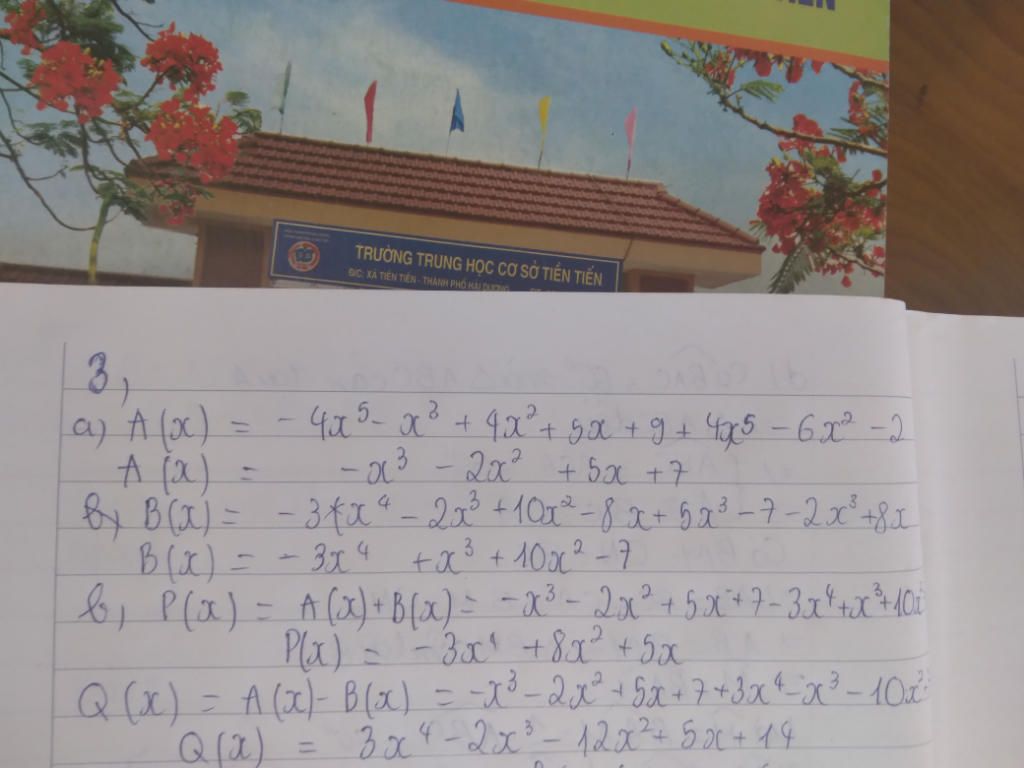 TRƯỜNG TRUNG HỌC CƠ SỞ TIỀN TIẾN
Đ/C: XÃ TIỀN TIẾN - THÀNH PHỐ HẢI DƯƠNG
3,
a) A(x) = - 4x⁵ - x³ + 4x² + 5x + 9 + 4x⁵ - 6x² - 2
A(x) = -x³ - 2x² + 5x + 7
B(x) = - 3x⁴ - 2x³ + 10x² - 8x + 5x³ - 7 - 2x³ + 8x
B(x) = - 3x⁴ + x³ + 10x² - 7
b, P(x) = A(x) + B(x) = -x³ - 2x² + 5x + 7 - 3x⁴ + x³ + 10x²
P(x) = -3x⁴ + 8x² + 5x
Q(x) = A(x) - B(x) = -x³ - 2x² + 5x + 7 + 3x⁴ - x³ - 10x²
Q(x) = 3x⁴ - 2x³ - 12x² + 5x + 14